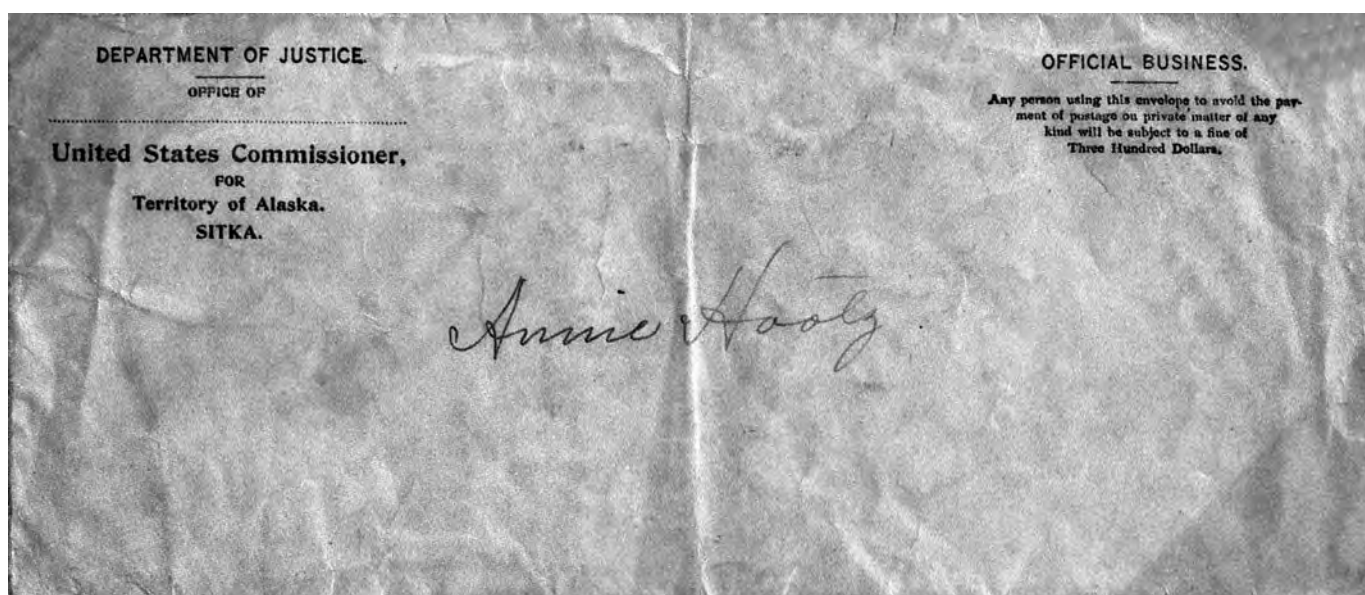 DEPARTMENT OF JUSTICE.
OFFICE OF
United States Commissioner,
FOR
Territory of Alaska.
SITKA.
OFFICIAL BUSINESS.
Any person using this envelope to avoid the pay-
ment of postage on private matter of any
kind will be subject to a fine of
Three Hundred Dollars.
Annie Hootz